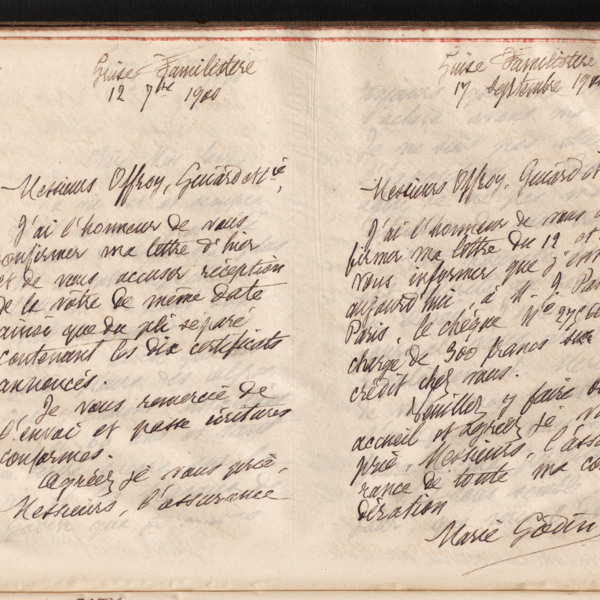 Guise Familistère
12 7bre 1900
Messieurs Offroy, Guiard et Cie,
J'ai l'honneur de vous
confirmer ma lettre d'hier
et de vous accuser réception
de la votre de même date
ainsi que du pli séparé
contenant les dix certificats
annoncés.
Je vous remercie de
l'envoi et passe écritures
conformes.
Agréez je vous prie,
Messieurs, l'assurance
Guise Familistère
17 septembre 190
Messieurs Offroy, Guiard et
J'ai l'honneur de vous
firmer ma lettre du 12 et
vous informer que j'
aujourd'hui, à M.
Paris, le chèque No
charge de 300 francs sur
crédit chez vous.
Veuillez y faire
accueil et agréez je
prie, Messieurs, l'assu
rance de toute ma con
dération
Marie Godin